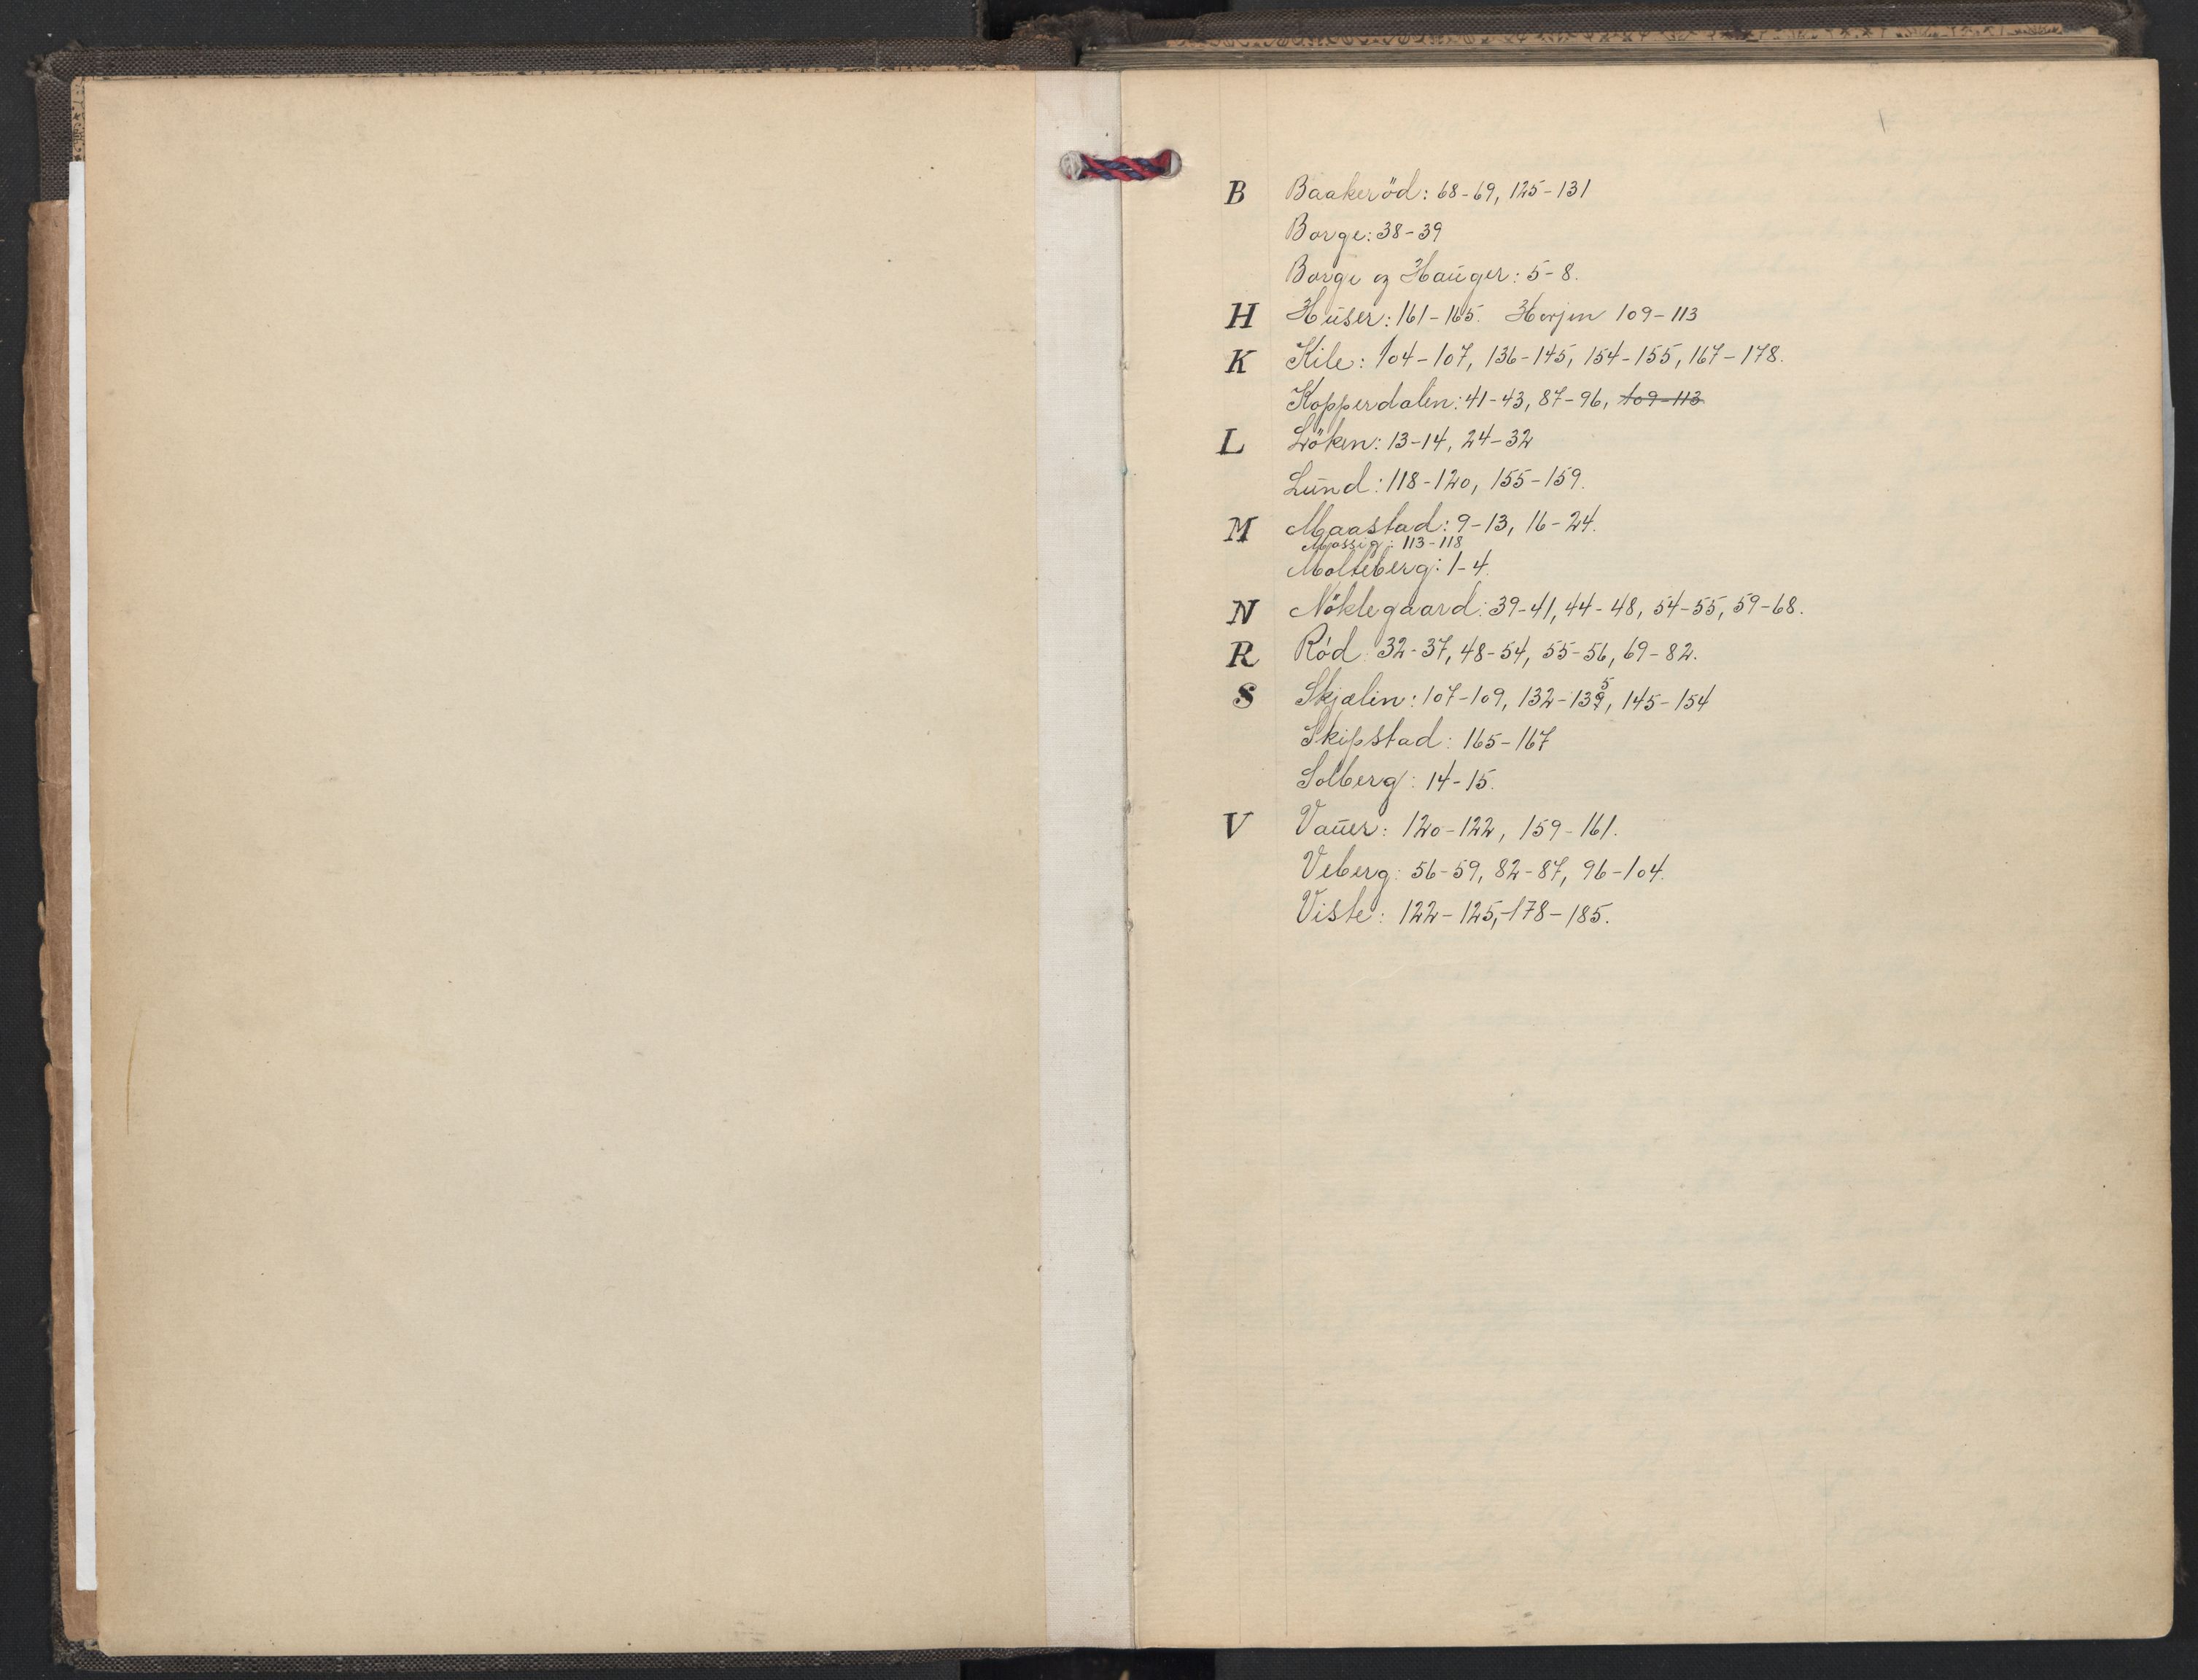 B Baakeröd: 68-69, 125-131
Borge: 38-39
Borge og Hauger: 5-8.
H Huser: 161-165. Herjen 109-113
K Kile: 104-107, 136-145, 154-155, 167-178.
Kopperdalen: 41-43, 87-96, 109-113
L Löken: 13-14, 24-32
Lund: 118-120, 155-159.
M Maastad: 9-13, 16-24.
Mossig: 113-118
Molteberg: 1-4.
N Nöklegaard: 39-41, 44-48, 54-55, 59-68.
R Röd: 32-37, 48-54, 55-56, 69-82.
S Skjælin: 107-109, 132-135, 145-154
Skipstad: 165-167
Solberg: 14-15.
V Vauer: 120-122, 159-161.
Veberg: 56-59, 82-87, 96-104.
Viste: 122-125, 178-185.